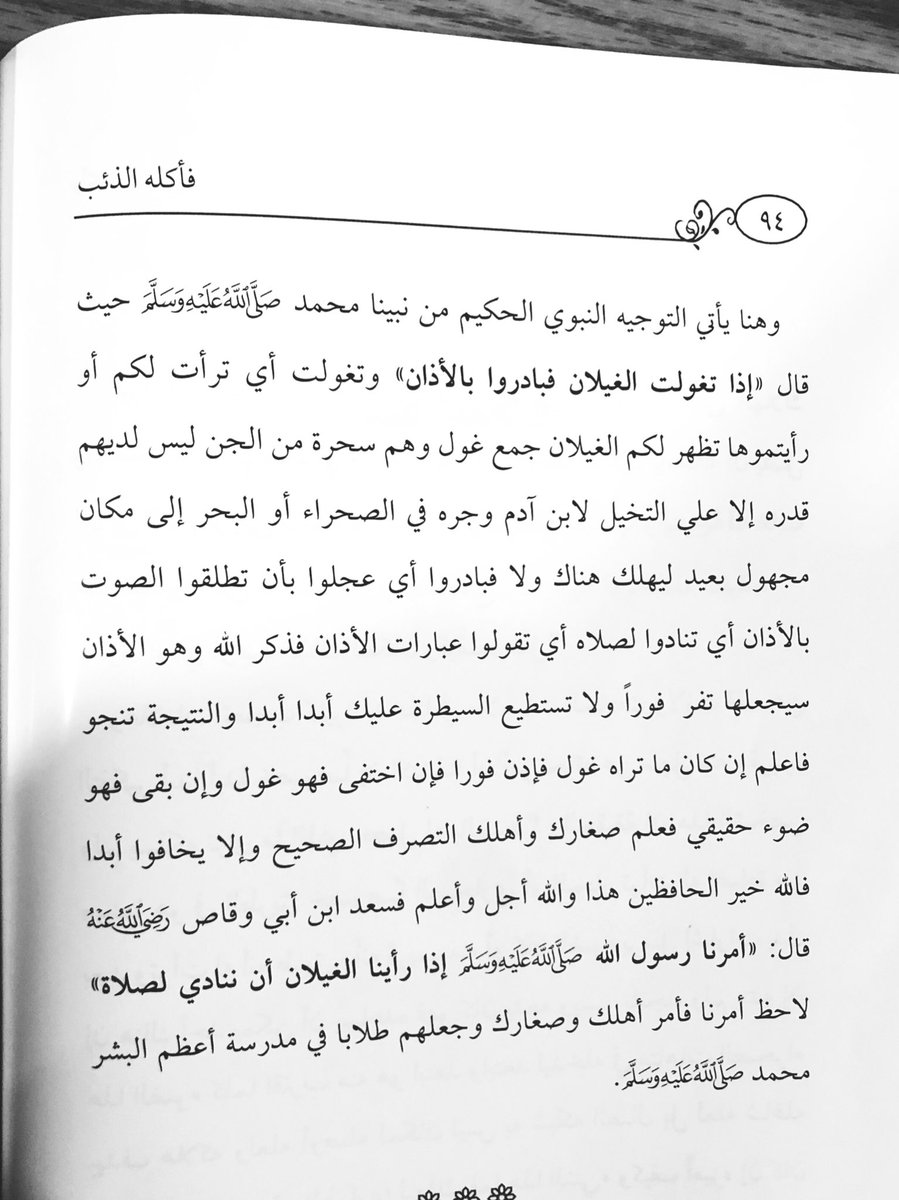 فأكله الذئب
٩٤
وهنا يأتي التوجيه النبوي الحكيم من نبينا محمد صَلَّى اللَّهُ عَلَيْهِ وَسَلَّمَ حيث
قال «إذا تغولت الغيلان فبادروا بالأذان» وتغولت أي ترأت لكم أو
رأيتموها تظهر لكم الغيلان جمع غول وهم سحرة من الجن ليس لديهم
قدره إلا علي التخيل لابن آدم وجره في الصحراء أو البحر إلى مكان
مجهول بعيد ليهلك هناك ولا فبادروا أي عجلوا بأن تطلقوا الصوت
بالأذان أي تنادوا لصلاه أي تقولوا عبارات الأذان فذكر الله وهو الأذان
سيجعلها تفر فوراً ولا تستطيع السيطرة عليك أبدا أبدا والنتيجة تنجو
فاعلم إن كان ما تراه غول فإذن فورا فإن اختفى فهو غول وإن بقى فهو
ضوء حقيقي فعلم صغارك وأهلك التصرف الصحيح وإلا يخافوا أبدا
فالله خير الحافظين هذا والله أجل وأعلم فسعد ابن أبي وقاص رَضِيَ اللَّهُ عَنْهُ
قال: «أمرنا رسول الله صَلَّى اللَّهُ عَلَيْهِ وَسَلَّمَ إذا رأينا الغيلان أن ننادي لصلاة»
لاحظ أمرنا فأمر أهلك وصغارك وجعلهم طلابا في مدرسة أعظم البشر
محمد صَلَّى اللَّهُ عَلَيْهِ وَسَلَّمَ.